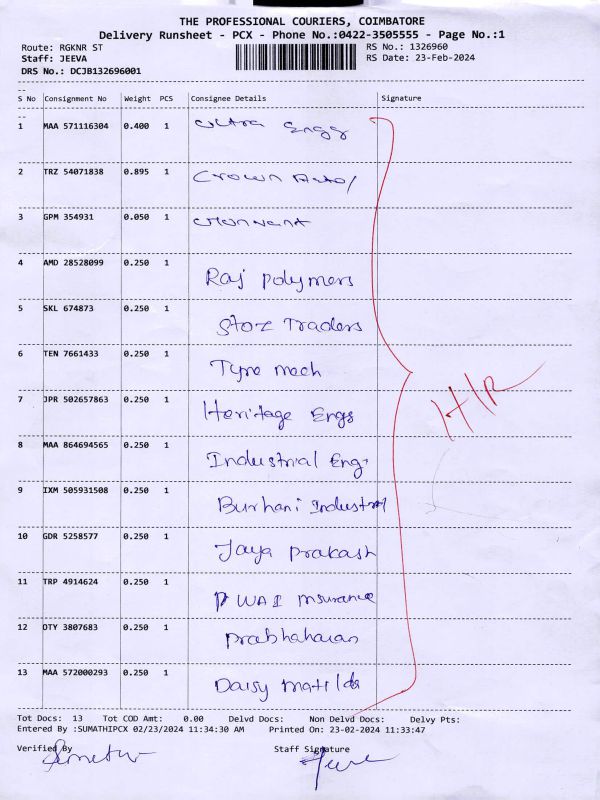 THE PROFESSIONAL COURIERS, COIMBATORE
Delivery Runsheet - PCX - Phone No.:0422-3505555 - Page No.:1
Route: RGKNR ST RS No.: 1326960
Staff: JEEVA RS Date: 23-Feb-2024
DRS No.: DCJB132696001
S No Consignment No Weight PCS Consignee Details Signature
1 MAA 571116304 0.400 1 Ultra Engg
2 TRZ 54071838 0.895 1 Crown Auto/
3 GPM 354931 0.050 1
4 AMD 28528099 0.250 1 Raj Polymers
5 SKL 674873 0.250 1 Stoz Traders
6 TEN 7661433 0.250 1 Tyre mech
7 JPR 502657863 0.250 1 Heritage Engs
8 MAA 864694565 0.250 1 Industrial Eng.
9 IXM 505931508 0.250 1 Burhani Industrial
10 GDR 5258577 0.250 1 Jaya Prakash
11 TRP 4914624 0.250 1 Insurance
12 OTY 3807683 0.250 1 Prabhaharan
13 MAA 572000293 0.250 1 Daisy Matilda
H/R
Tot Docs: 13 Tot COD Amt: 0.00 Delvd Docs: Non Delvd Docs: Delvy Pts:
Entered By :SUMATHIPCX 02/23/2024 11:34:30 AM Printed On: 23-02-2024 11:33:47
Verified By Staff Signature